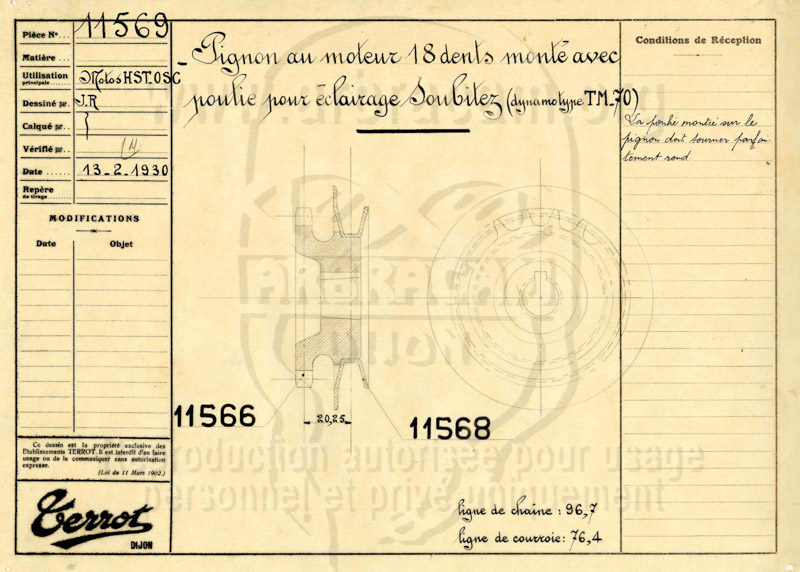 Pièce N° 11569
Matière
Utilisation principale Motos HST.OSC
Dessiné par J.R
Calqué par
Vérifié par
Date 13-2-1930
Repère de tirage
MODIFICATIONS
Date Objet
- Pignon au moteur 18 dents monté avec
poulie pour éclairage Soubitez (dynamo type TM-70)
Conditions de Réception
La poulie montée sur le
pignon doit tourner parfai-
tement rond
ARBRACAM
DIJON
11566
20,25
11568
Ce dessin est la propriété exclusive des
Etablissements TERROT. Il est interdit d'en faire
usage ou de le communiquer sans autorisation
expresse.
(Loi du 11 Mars 1902.)
reproduction autorisée pour usage
personnel et privé uniquement
Terrot
DIJON
ligne de chaine : 96,7
ligne de courroie : 76,4